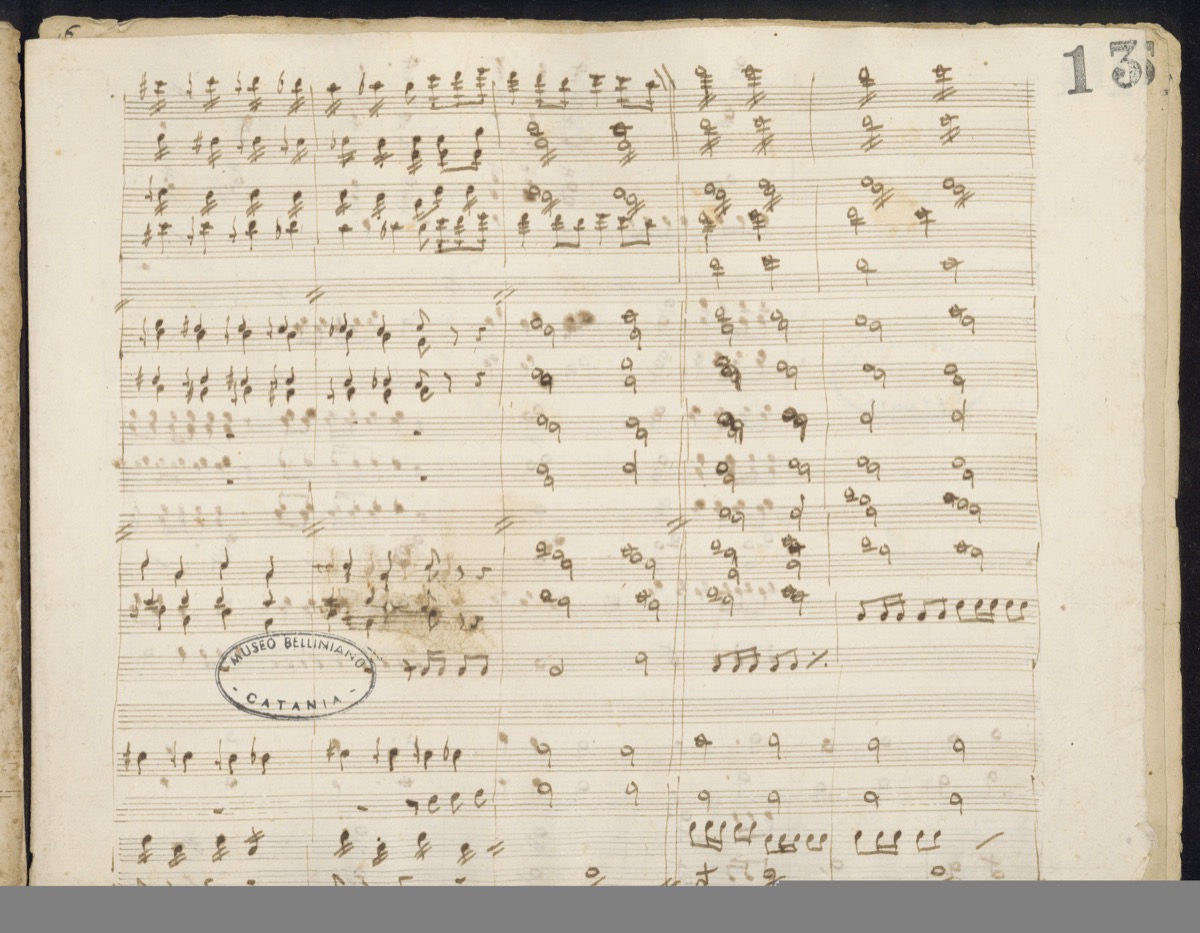 13
MUSEO BELLINIANO
- CATANIA -